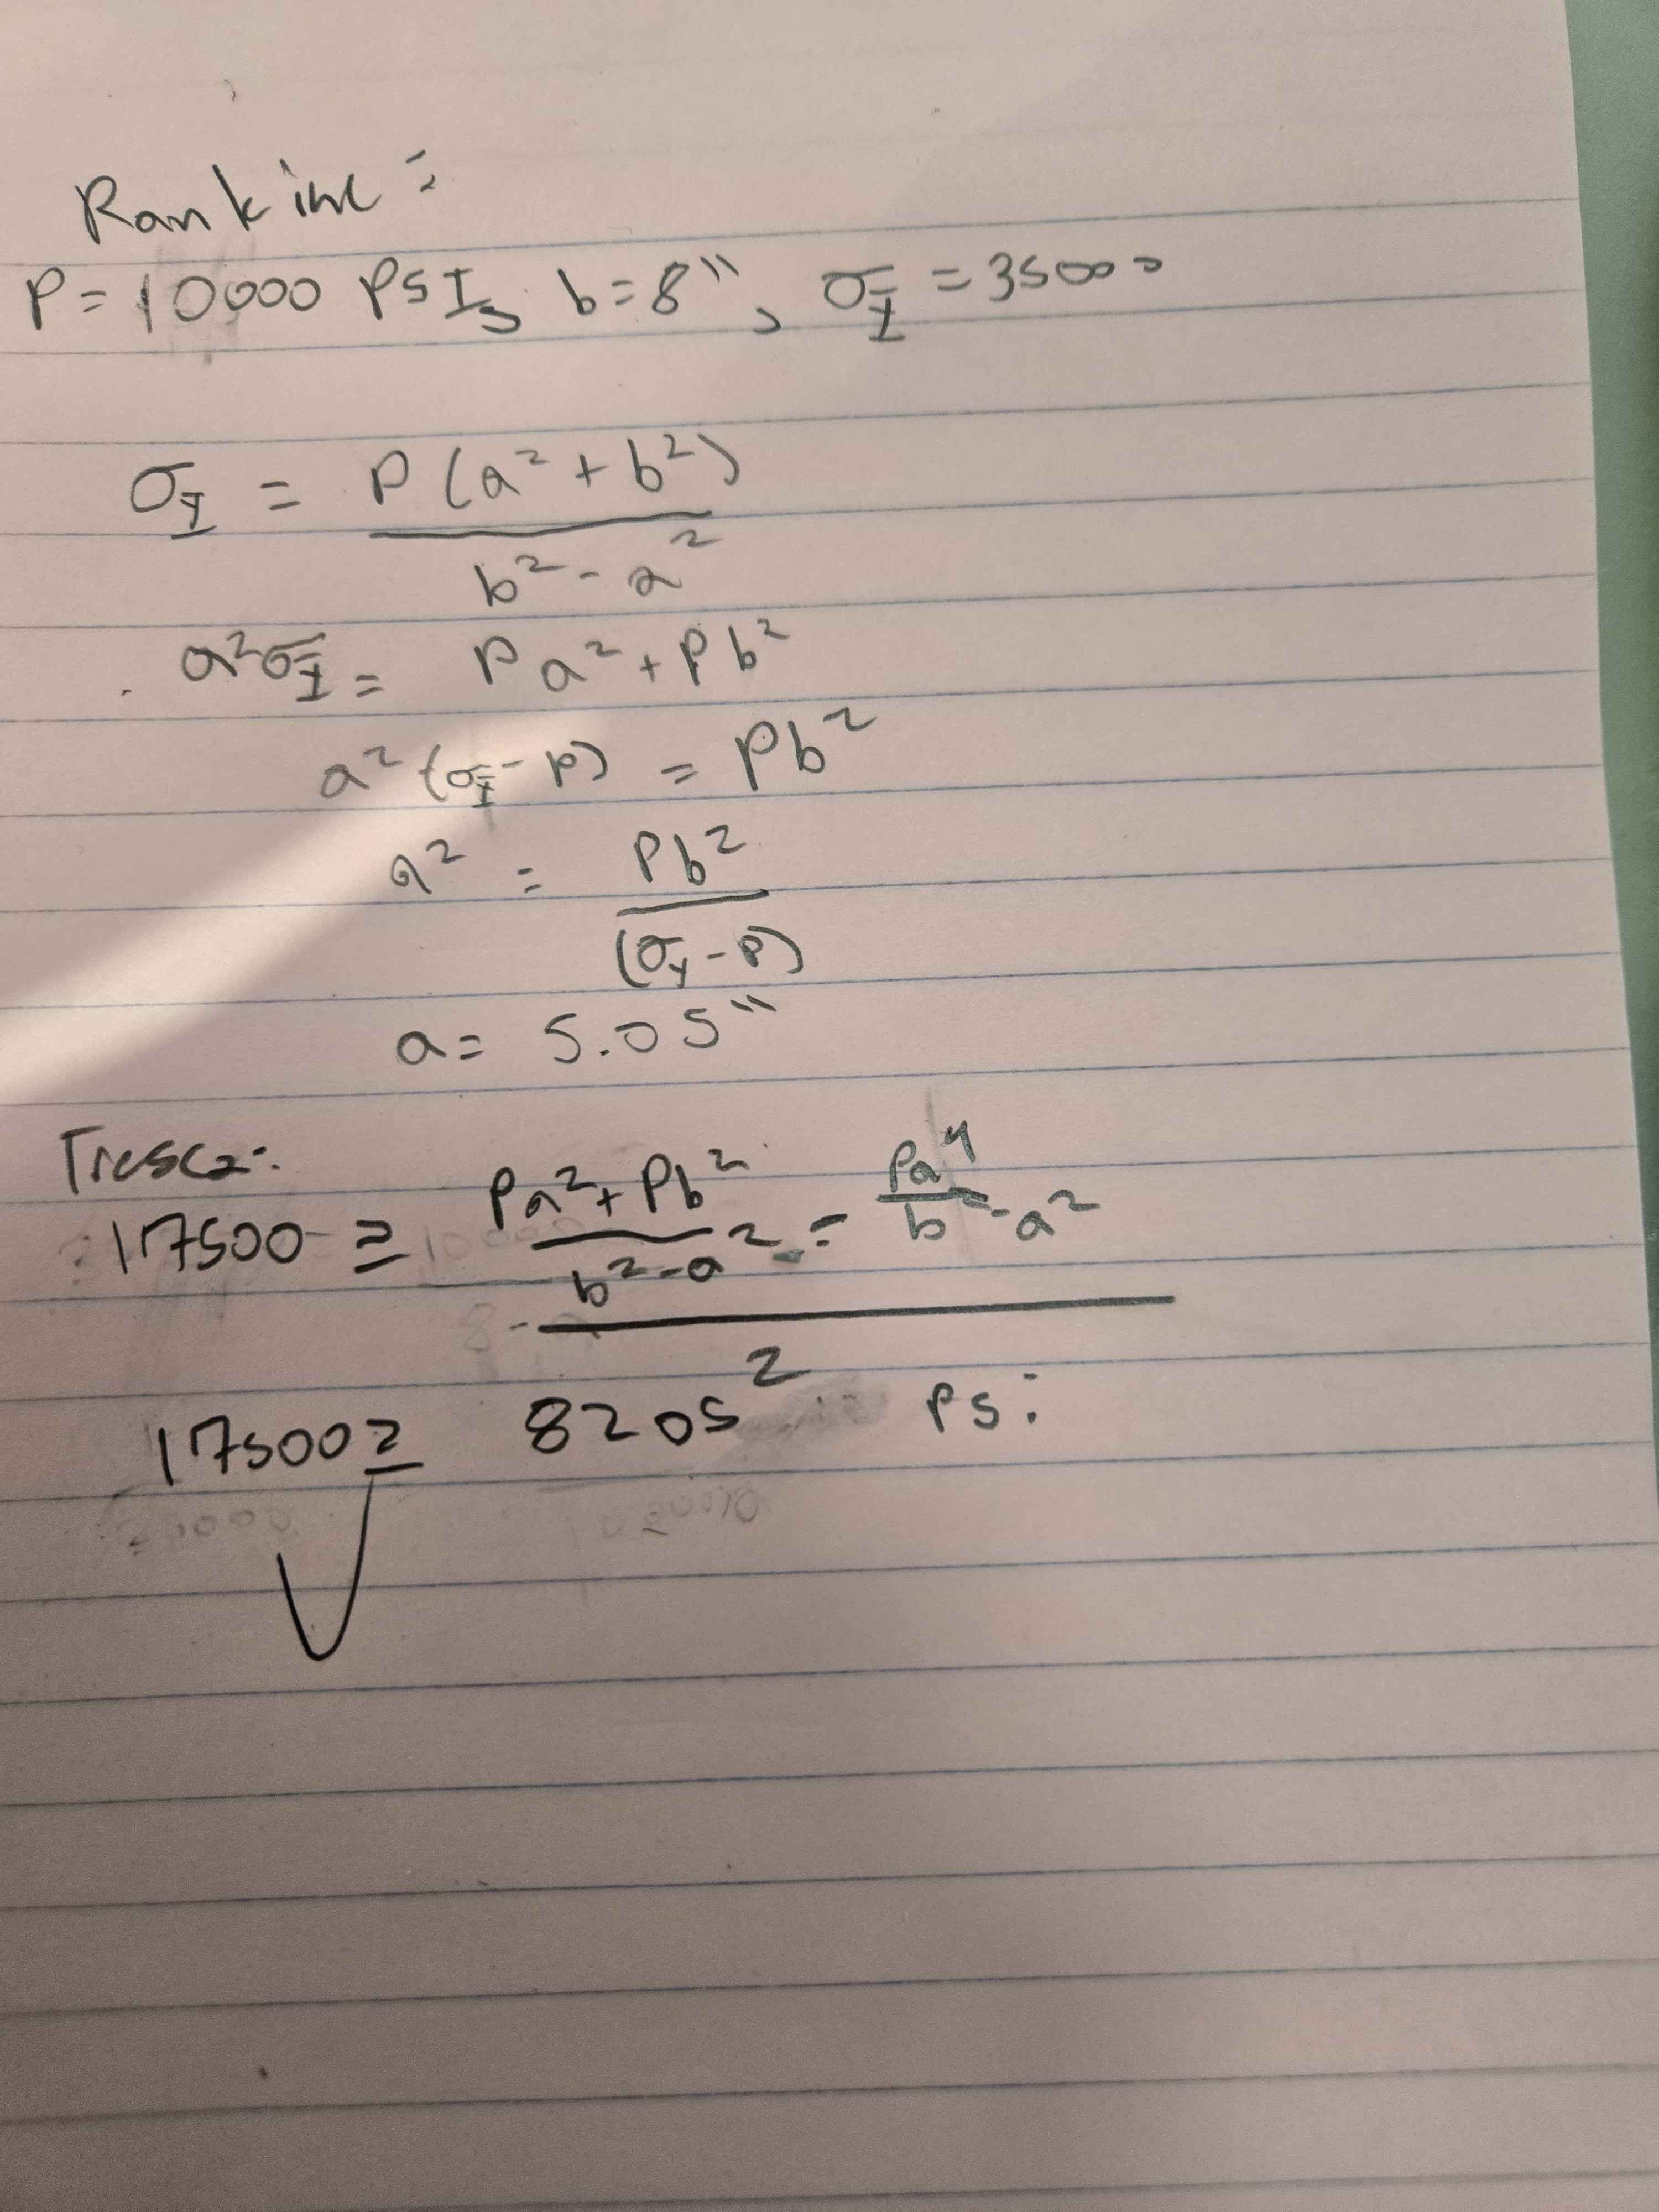 Rankine:
P = 10000 PSI, b = 8", σ_Y = 35000
σ_Y = P(a² + b²)
b² - a²
a²σ_Y = Pa² + Pb²
a²(σ_Y - P) = Pb²
a² = Pb²
(σ_Y - P)
a = 5.05"
Tresca:
17500 ≥ Pa² + Pb² / b² - a² - Pa⁴ / b² - a²
2
17500 ≥ 8205 psi